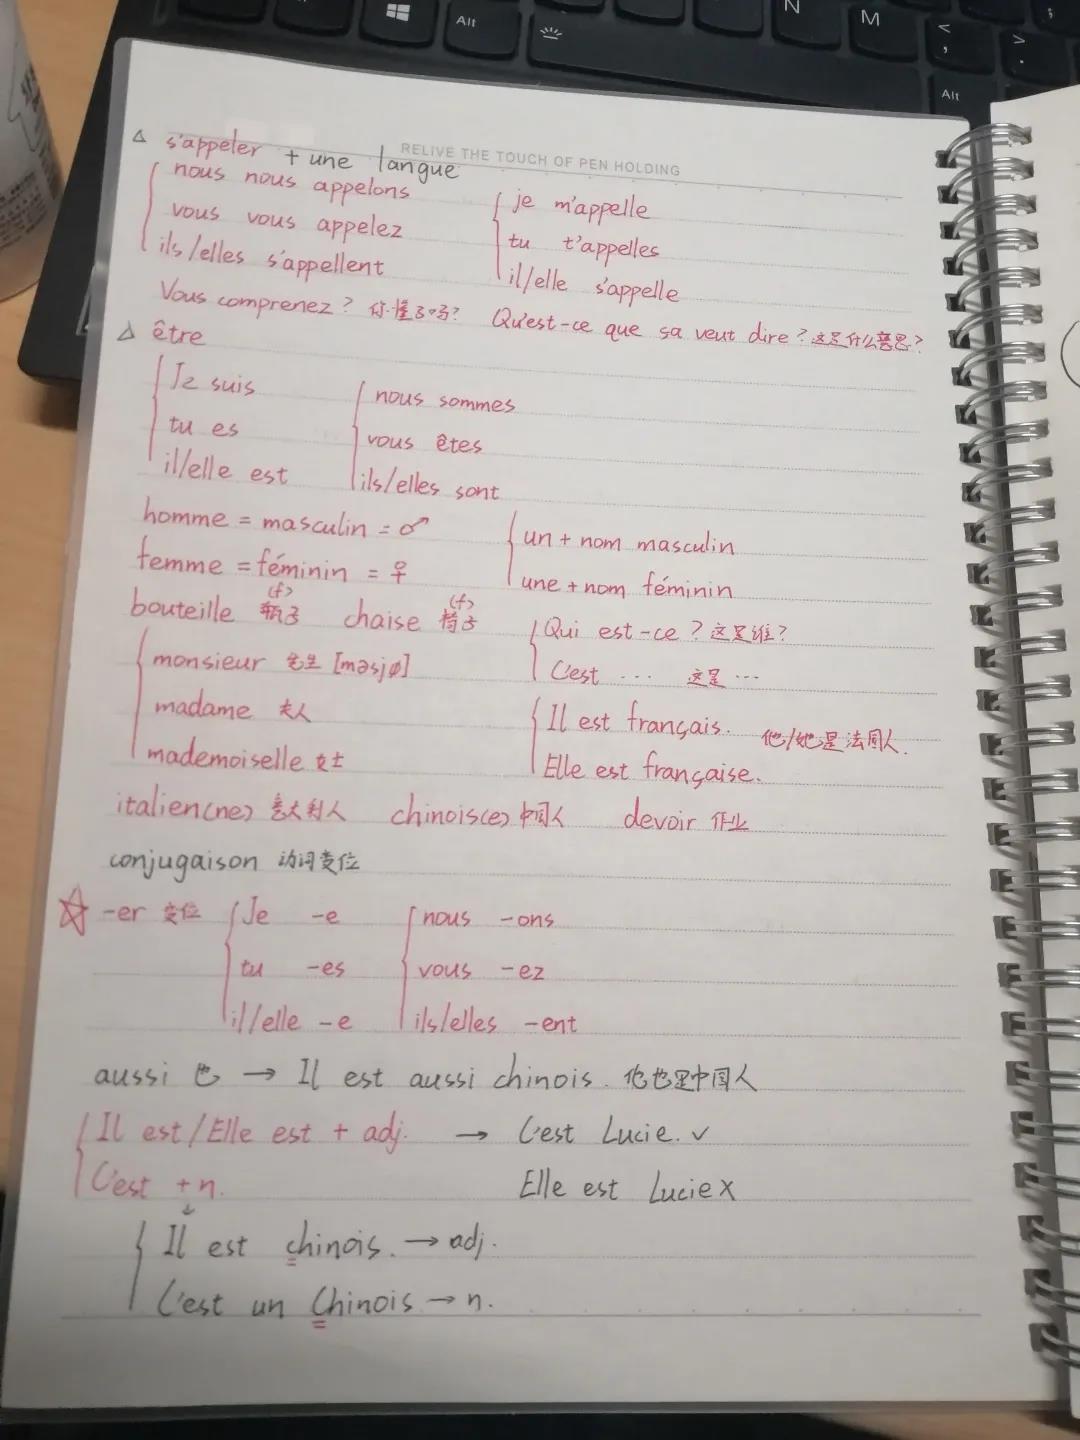 N
M
Alt
<
,
>
.
;
Alt
RELIVE THE TOUCH OF PEN HOLDING
△ s'appeler + une langue
nous nous appelons je m'appelle
vous vous appelez tu t'appelles
ils/elles s'appellent il/elle s'appelle
Vous comprenez? 你懂了吗? Qu'est-ce que sa veut dire? 这是什么意思?
△ être
Je suis nous sommes
tu es vous êtes
il/elle est ils/elles sont
homme = masculin = ♂ un + nom masculin
femme = féminin = ♀ une + nom féminin
bouteille (f) 瓶子 chaise (f) 椅子 Qui est-ce? 这是谁?
monsieur 先生 [məsjø] C'est ... 这是 ...
madame 夫人 Il est français. 他/她是法国人.
mademoiselle 女士 Elle est française.
italien(ne) 意大利人 chinois(e) 中国人 devoir 作业
conjugaison 动词变位
☆ -er 变位 Je -e nous -ons
tu -es vous -ez
il/elle -e ils/elles -ent
aussi 也 → Il est aussi chinois. 他也是中国人
Il est/Elle est + adj. → C'est Lucie. ✓
C'est + n. Elle est Lucie X
↓
Il est chinois. → adj.
C'est un Chinois → n.